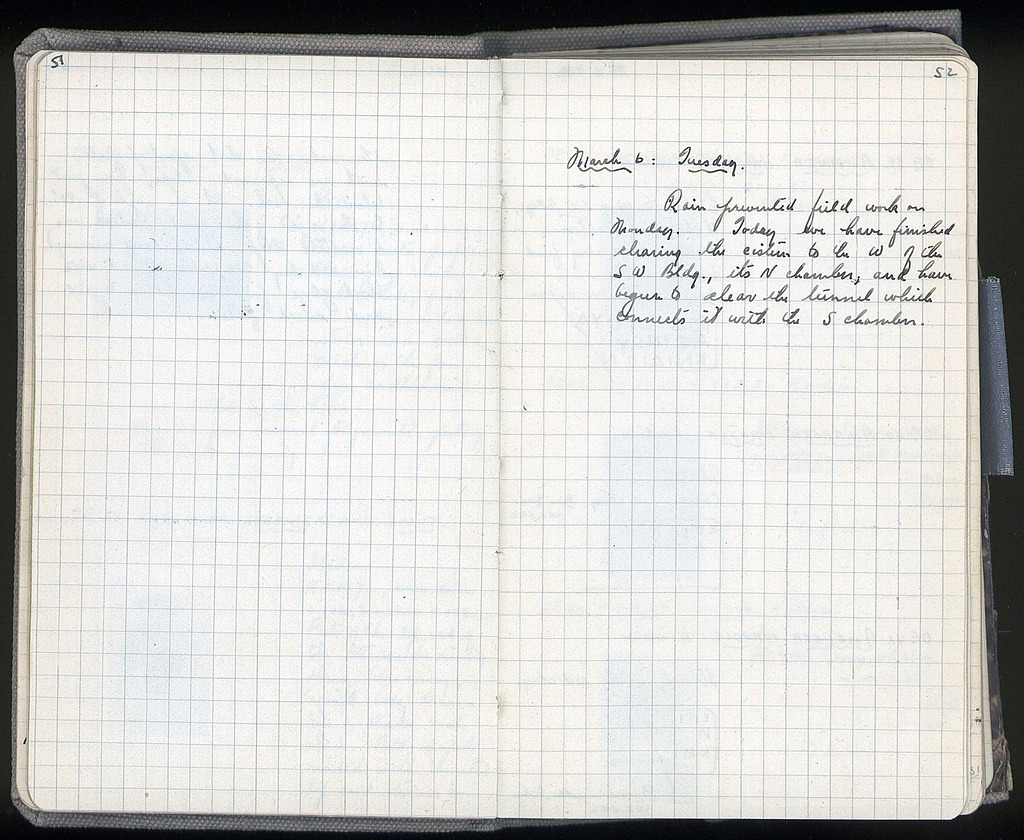 51
52
March 6: Tuesday.
Rain prevented field work on
Monday. Today we have finished
clearing the cistern to the W of the
SW Bldg., its N chamber, and have
begun to clear the tunnel which
connects it with the S chamber.